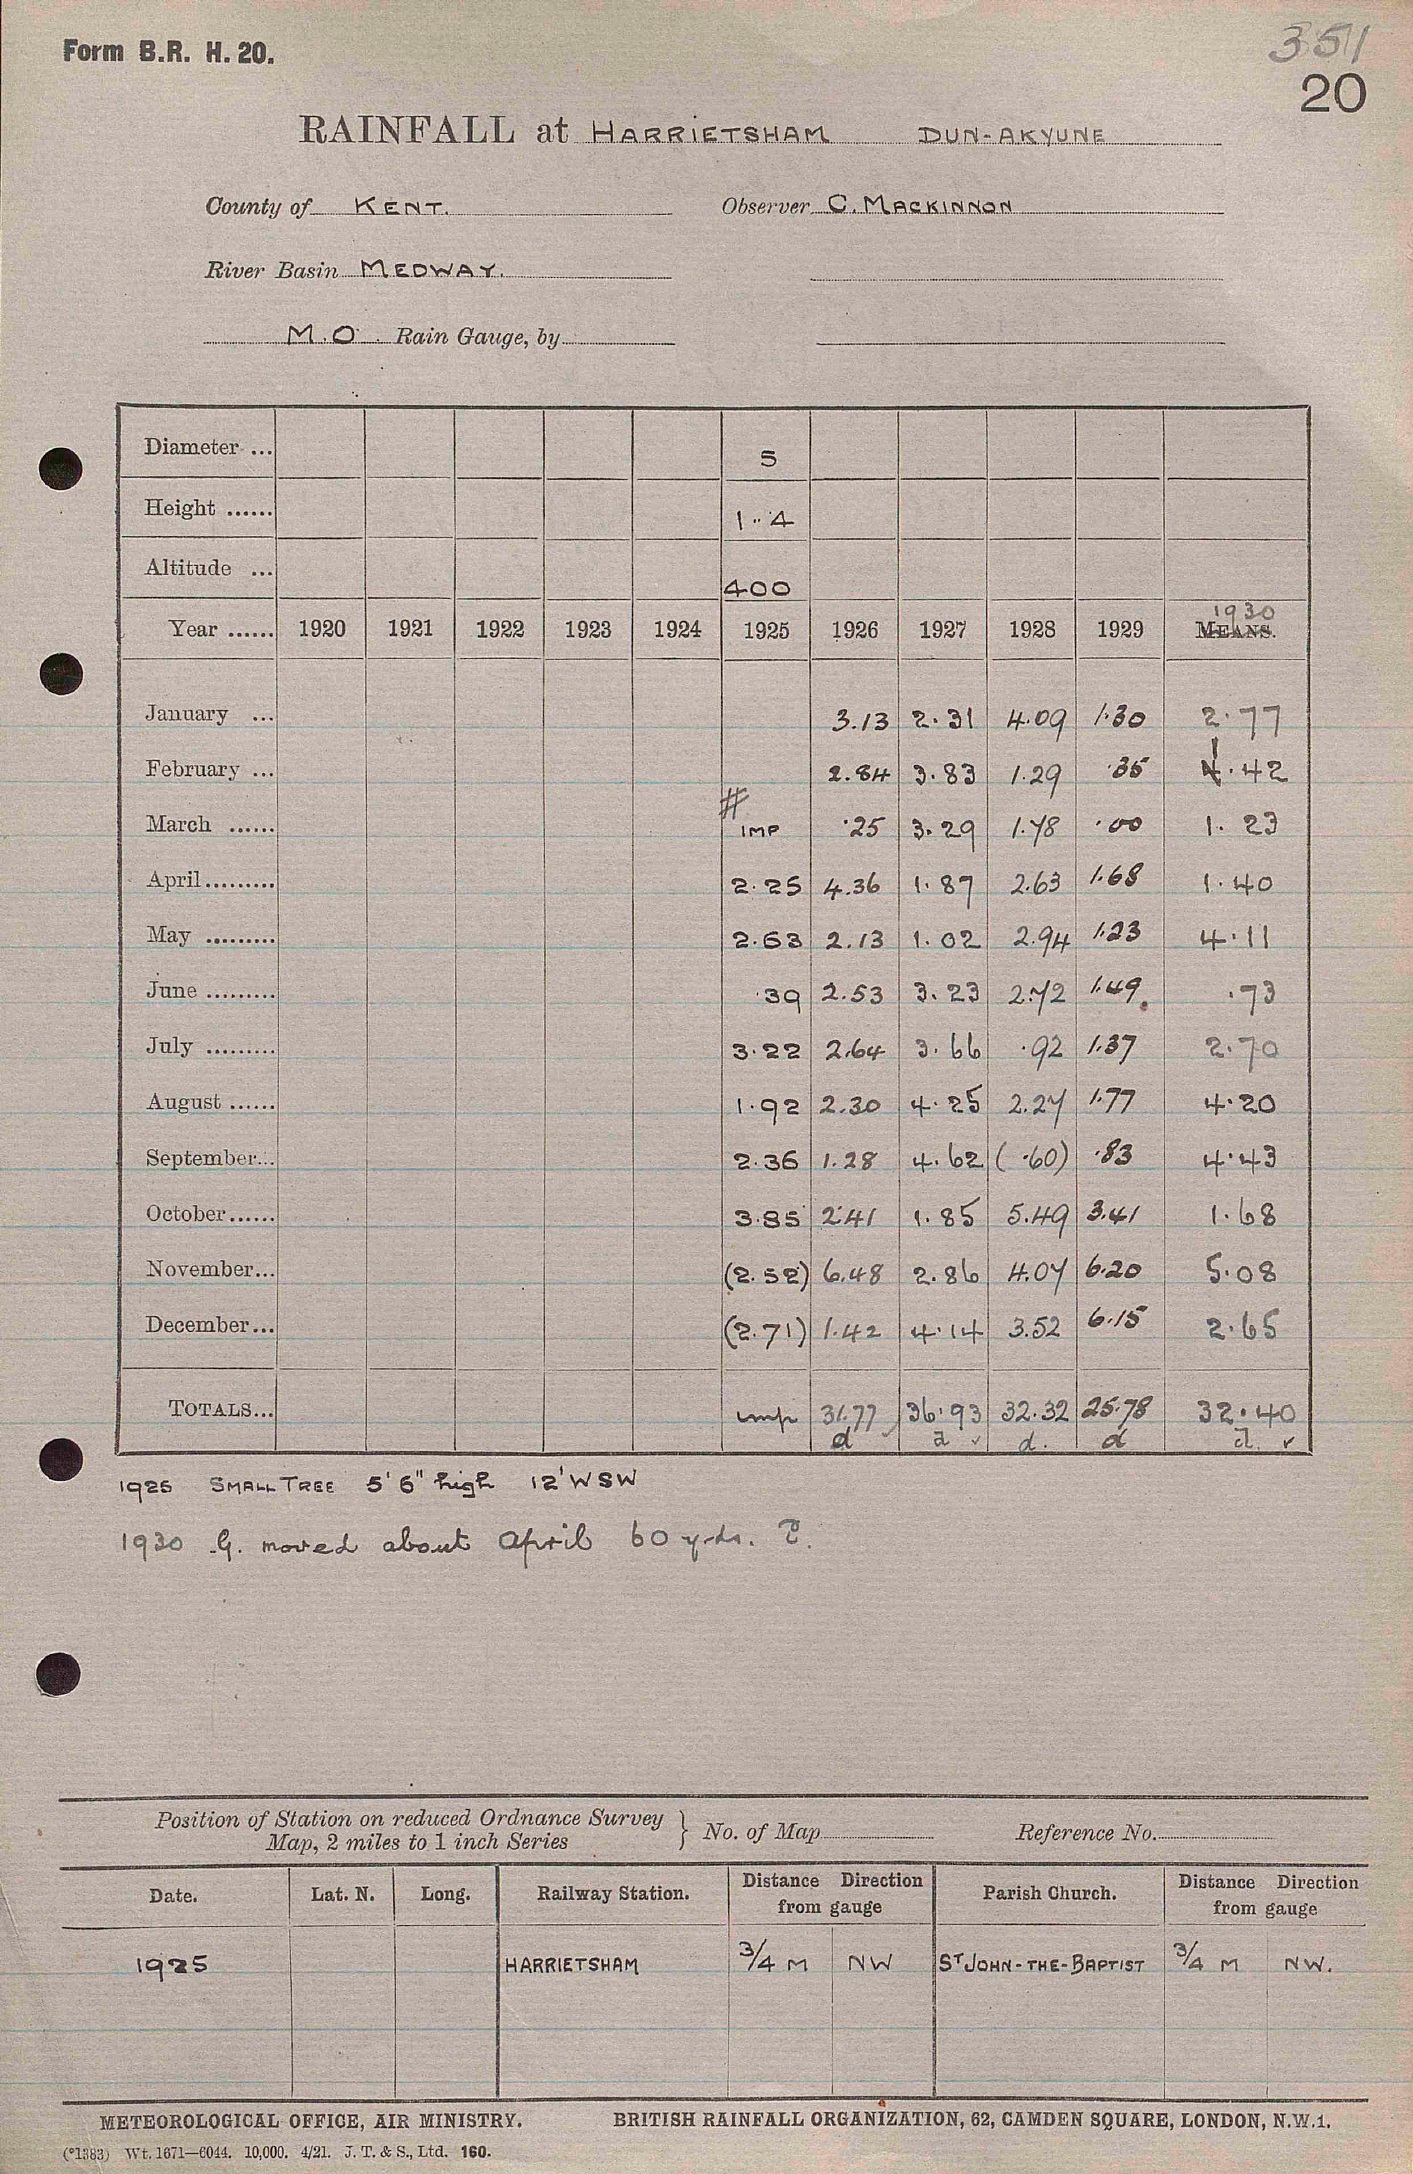 Form B.R. H. 20.
351
20
RAINFALL at HARRIETSHAM DUN-AKYUNE
County of KENT. Observer C. MACKINNON
River Basin MEDWAY.
M.O. Rain Gauge, by
Diameter ... 5
Height ...... 1 .. 4
Altitude ... 400
1930
Year ...... 1920 1921 1922 1923 1924 1925 1926 1927 1928 1929 MEANS.
January ... 3.13 2.31 4.09 1.30 2.77
February ... 2.84 3.83 1.29 .35 1.42
#
March ...... IMP .25 3.29 1.78 .00 1.23
April ......... 2.25 4.36 1.87 2.63 1.68 1.40
May ......... 2.63 2.13 1.02 2.94 1.23 4.11
June ......... .39 2.53 3.23 2.72 1.49 .73
July ......... 3.22 2.64 3.66 .92 1.37 2.70
August ...... 1.92 2.30 4.25 2.27 1.77 4.20
September... 2.36 1.28 4.62 ( .60) .83 4.43
October ...... 3.85 2.41 1.85 5.49 3.41 1.68
November... (2.52) 6.48 2.86 4.07 6.20 5.08
December... (2.71) 1.42 4.14 3.52 6.15 2.65
TOTALS... imp 31.77 36.93 32.32 25.78 32.40
d d ✓ d. d d. ✓
1925 SMALL TREE 5' 6" high 12' WSW
1930 G. moved about April 60 yds. E.
Position of Station on reduced Ordnance Survey
Map, 2 miles to 1 inch Series } No. of Map Reference No.
Date. Lat. N. Long. Railway Station. Distance Direction from gauge Parish Church. Distance Direction from gauge
1925 HARRIETSHAM 3/4 M NW ST JOHN-THE-BAPTIST 3/4 M NW.
METEOROLOGICAL OFFICE, AIR MINISTRY. BRITISH RAINFALL ORGANIZATION, 62, CAMDEN SQUARE, LONDON, N.W.1.
(*1383) Wt. 1671—6044. 10,000. 4/21. J. T. & S., Ltd. 160.